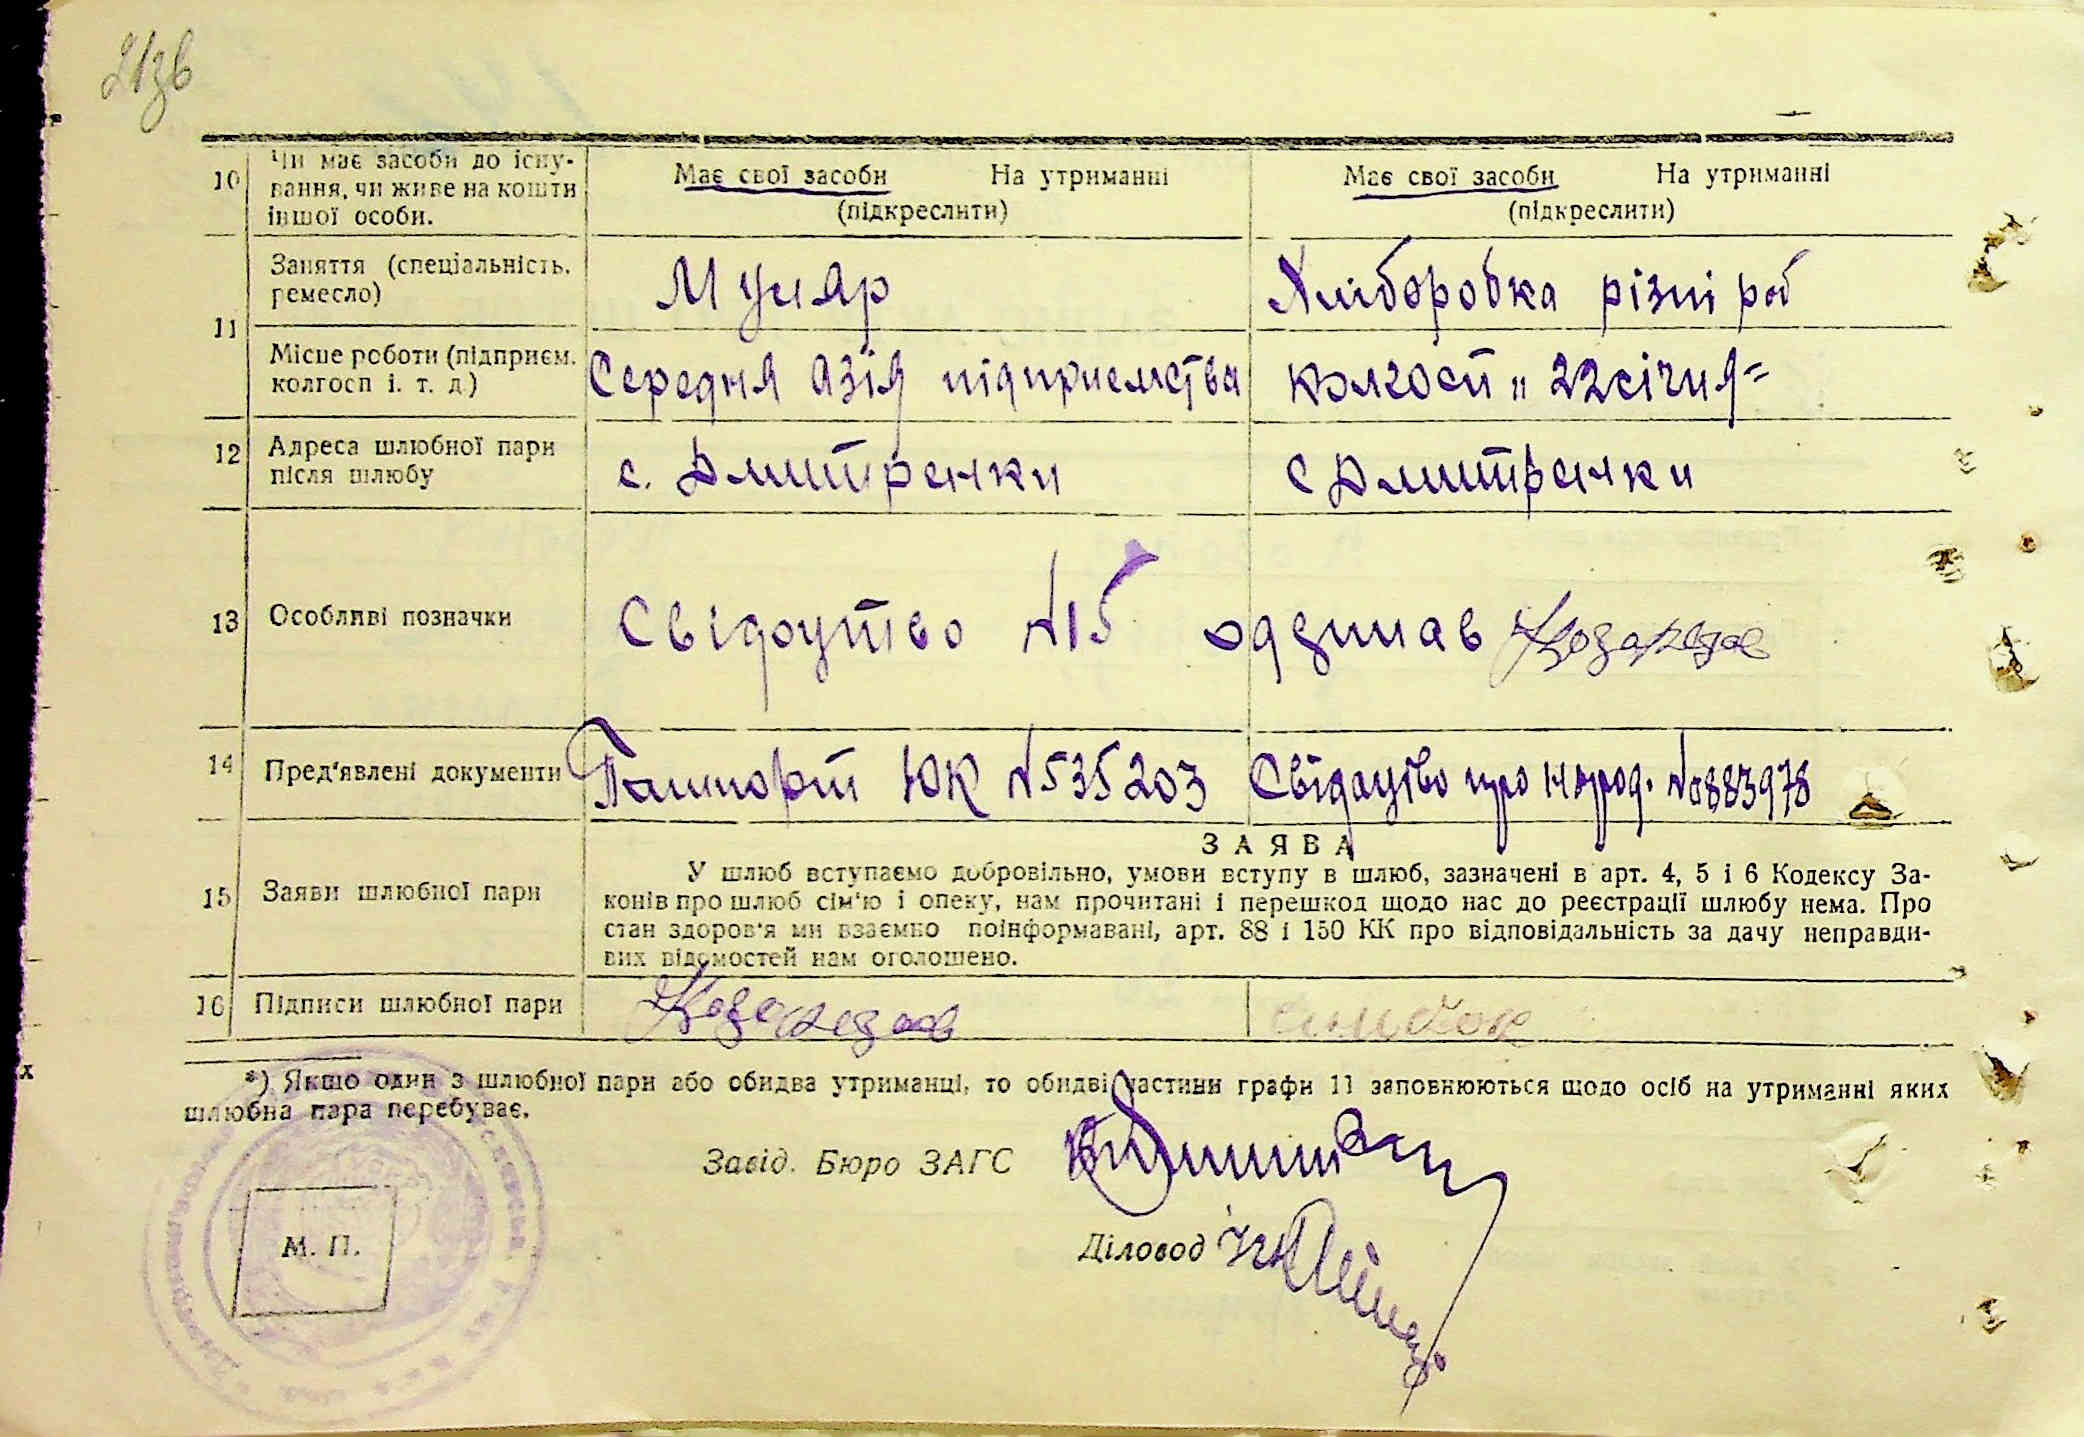 21зв
10 Чи має засоби до існу-
вання, чи живе на кошти
іншої особи.
Має свої засоби На утриманні
(підкреслити)
Має свої засоби На утриманні
(підкреслити)
11
Заняття (спеціальність,
ремесло)
Муляр
Хліборобка різні роб
Місце роботи (підприєм.
колгосп і. т. д)
Середня Азія підприємства
колгосп „22 січня"
12 Адреса шлюбної пари
після шлюбу
с. Дмитренки
с Дмитренки
13 Особливі позначки
Свідоцтво №15 одержав
14 Пред'явлені документи
Пашпорт ЮК №535203
Свідоцтво про народ. №883978
15 Заяви шлюбної пари
ЗАЯВА
У шлюб вступаємо добровільно, умови вступу в шлюб, зазначені в арт. 4, 5 і 6 Кодексу За-
конів про шлюб сім'ю і опеку, нам прочитані і перешкод щодо нас до реєстрації шлюбу нема. Про
стан здоров'я ми взаємно поінформавані, арт. 88 і 150 КК про відповідальність за дачу неправди-
вих відомостей нам оголошено.
16 Підписи шлюбної пари
*) Якщо один з шлюбної пари або обидва утриманці, то обидві частини графи 11 заповнюються щодо осіб на утриманні яких
шлюбна пара перебуває.
Завід. Бюро ЗАГС
М. П.
Діловод